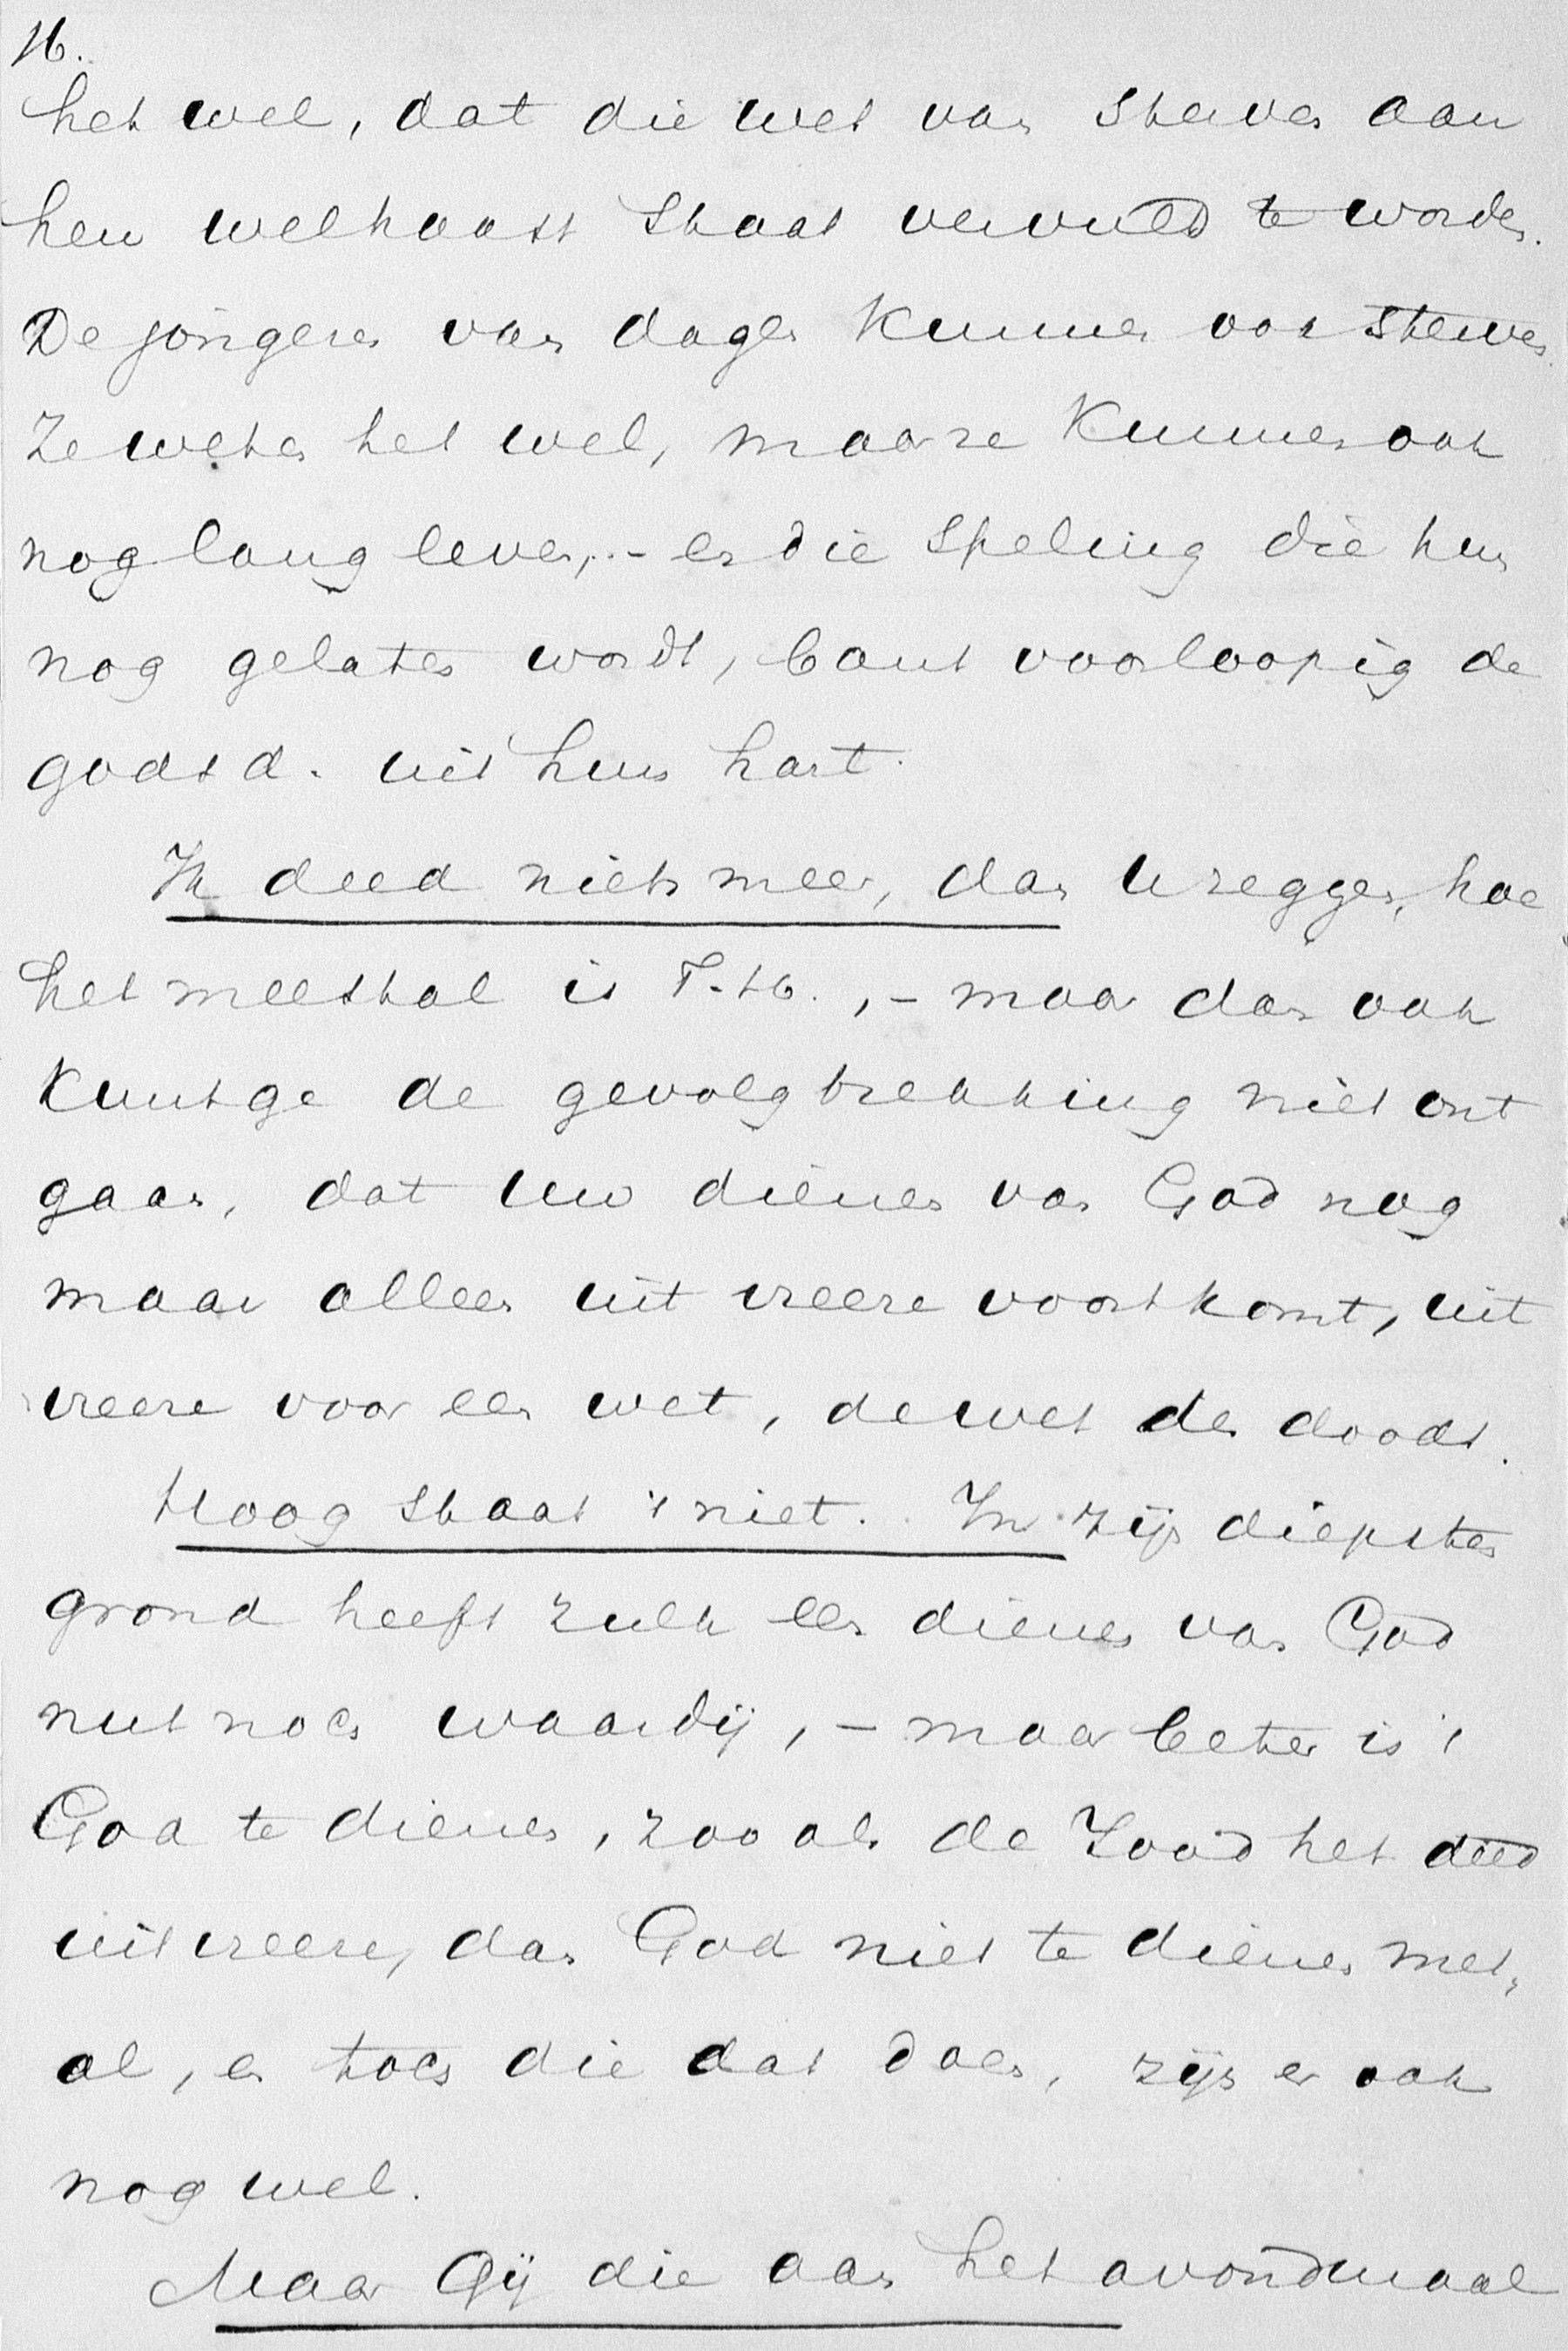 16.
het wel, dat die wet van sterven aan
hen welhaast staat vervuld te worden.
De jongeren van dagen kunnen ook sterven.
Ze weten het wel, maar ze kunnen ook
nog lang leven, - en die speling die hun
nog gelaten wordt, bant voorloopig de
godsd. uit hun hart.
Ik deed niets meer, dan U zeggen, hoe
het meestal is T. H., - maar dan ook
kunt ge de gevolgtrekking niet ont
gaan, dat uw dienen van God nog
maar alleen uit vreeze voortkomt, uit
vreeze voor een wet, de wet des doods.
Hoog staat 't niet. In zijn diepsten
grond heeft zulk een dienen van God
nut noch waardij, - maar beter is 't
God te dienen, zooals de Jood het deed
uit vreeze, dan God niet te dienen met,
al, en toch die dat doen, zijn er ook
nog wel.
Maar Gij die aan het avondmaal